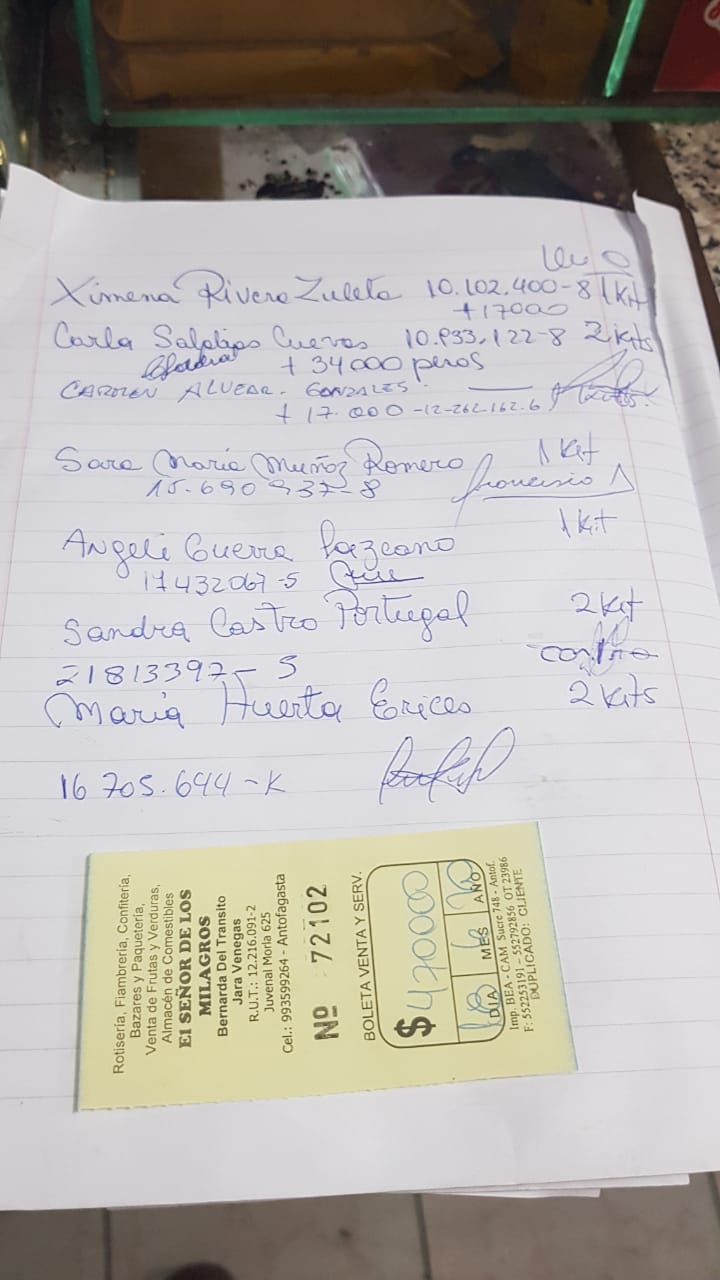 Ximena Rivera Zuleta 10.102.400-8 1 Kit
+17000
Carla Cuevas 10.933.122-8 2 Kits
+ 34000 pesos
CARMEN ALVEAR. GONZALES.
+ 17.000 -12-262-162.6
Sara Maria Muñoz Romero 1 Kit
15.690937-8
1 Kit
Angeli Guerra Lazcano
17432067-5
Sandra Castro Portugal 2 Kit
21813397-5
Maria Huerta Erices 2 Kits
16 705.644-K
Rotisería, Fiambrería, Confitería,
Bazares y Paquetería,
Venta de Frutas y Verduras,
Almacén de Comestibles
El SEÑOR DE LOS
MILAGROS
Bernarda Del Transito
Jara Venegas
R.U.T.: 12.216.091-2
Juvenal Morla 625
Cel.: 993599264 - Antofagasta
Nº 72102
BOLETA VENTA Y SERV.
$ 470000
DIA MES AÑO
Imp. BEA - CAM Sucre 748 - Antof.
F: 552253191 - 552792856 OT 23986
DUPLICADO: CLIENTE